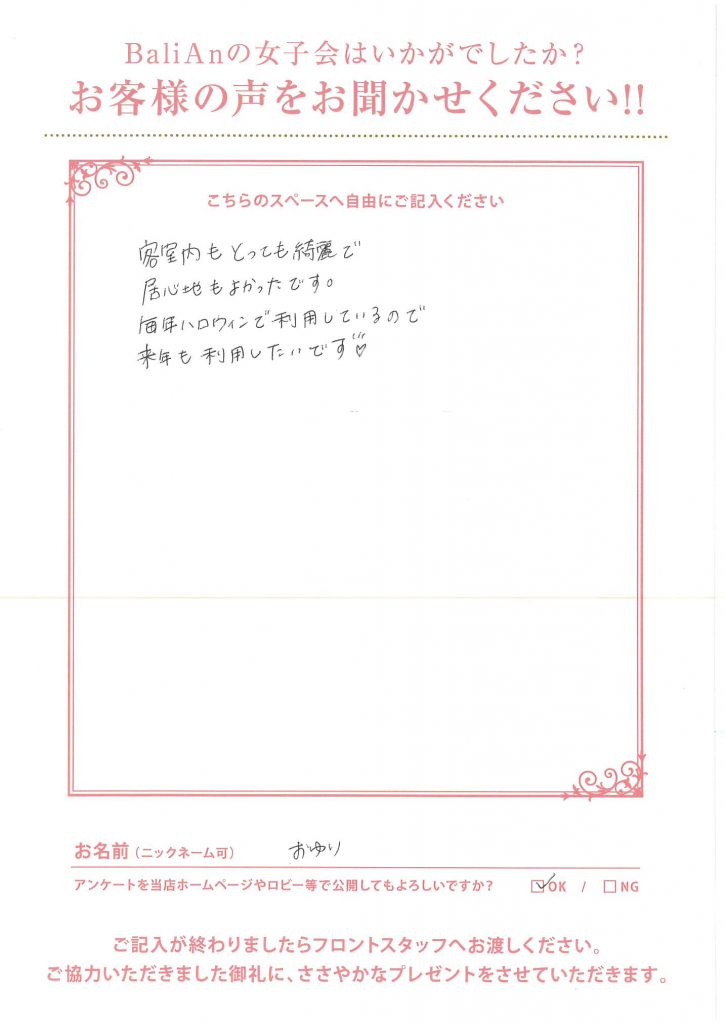 BaliAnの女子会はいかがでしたか?
お客様の声をお聞かせください!!
こちらのスペースへ自由にご記入ください
客室内もとっても綺麗で
居心地もよかったです。
毎年ハロウィンで利用しているので
来年も利用したいです♡
お名前(ニックネーム可) おゆり
アンケートを当店ホームページやロビー等で公開してもよろしいですか? ☑OK / □NG
ご記入が終わりましたらフロントスタッフへお渡しください。
ご協力いただきました御礼に、ささやかなプレゼントをさせていただきます。